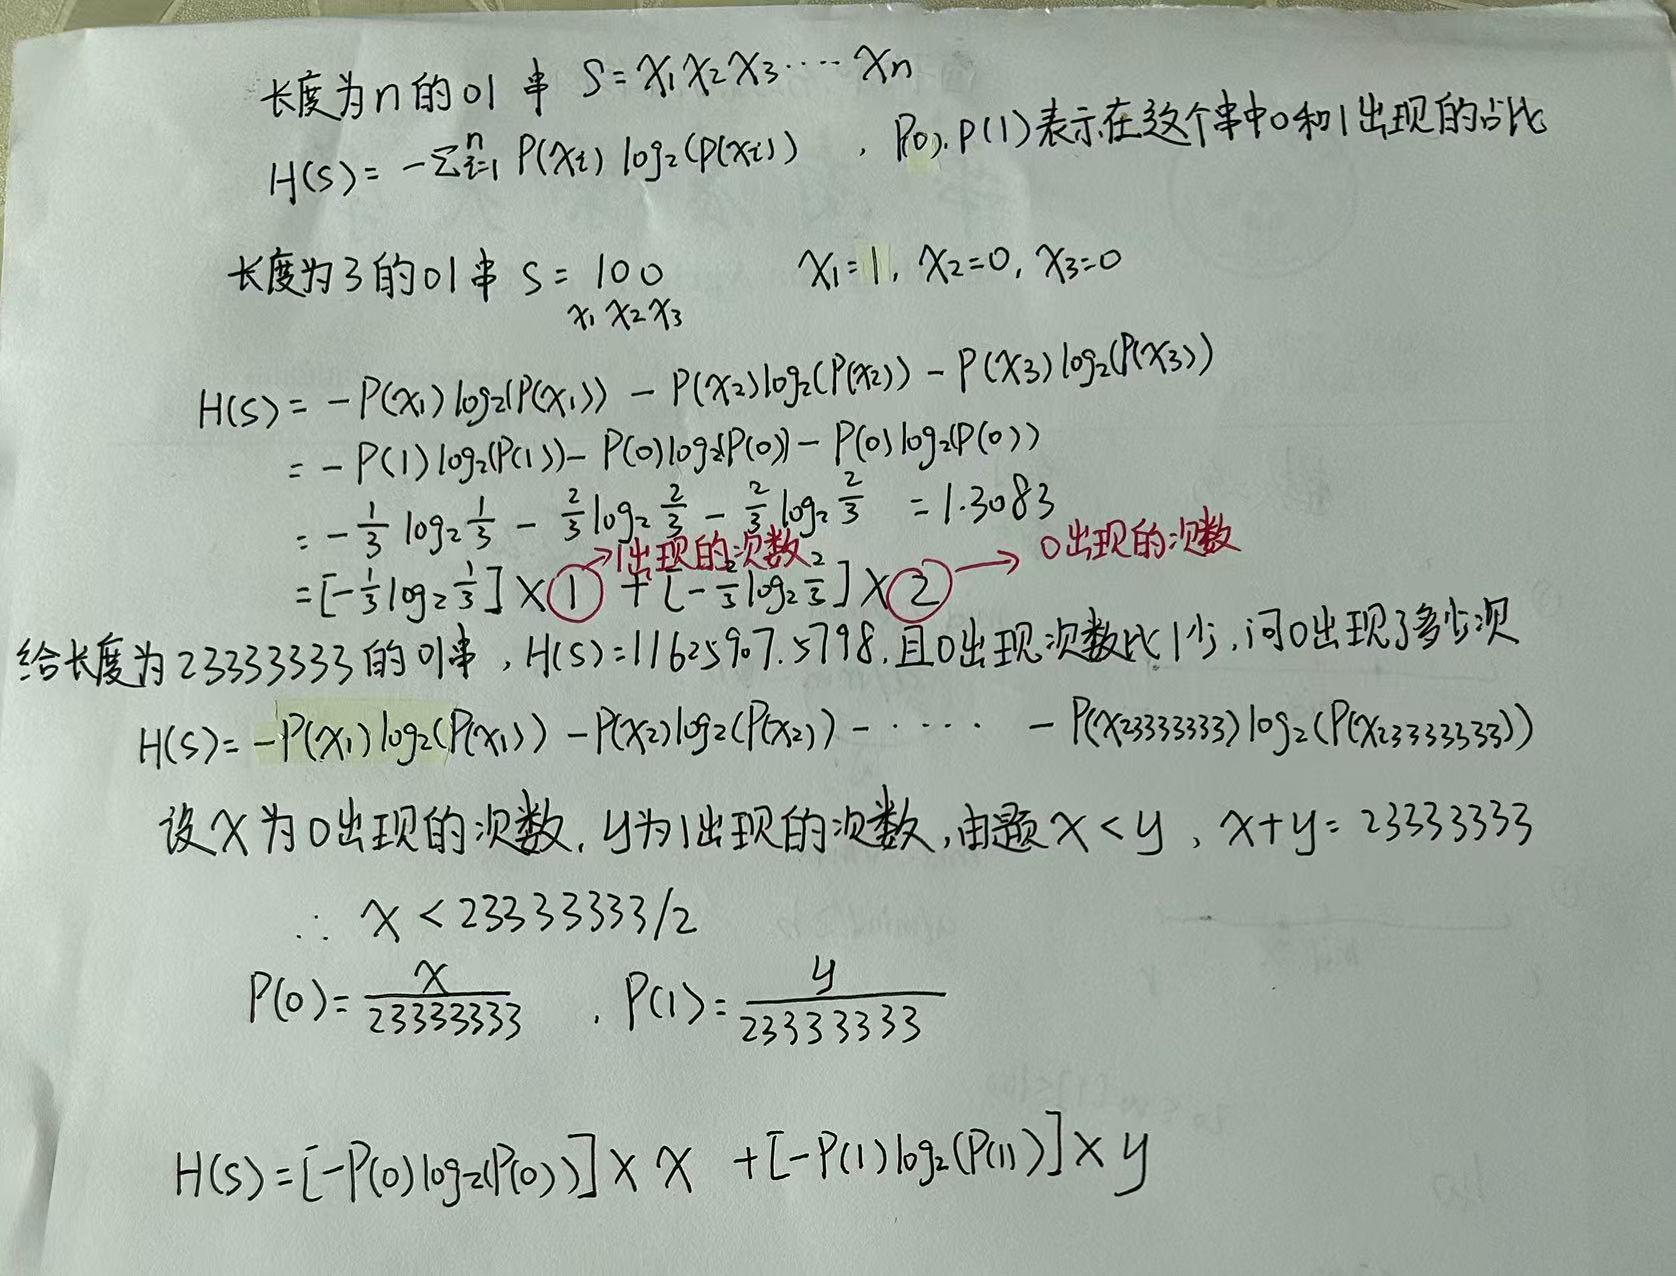 长度为n的01串 S=X₁X₂X₃·····Xn
H(S)= -Σⁿᵢ₌₁ P(Xi) log₂(P(Xi)) , P(0), P(1)表示在这个串中0和1出现的占比
长度为3的01串 S= 100 X₁=1, X₂=0, X₃=0
X₁ X₂ X₃
H(S)= -P(X₁)log₂(P(X₁)) - P(X₂)log₂(P(X₂)) - P(X₃)log₂(P(X₃))
= -P(1)log₂(P(1)) - P(0)log₂(P(0)) - P(0)log₂(P(0))
= -1/3 log₂ 1/3 - 2/3 log₂ 2/3 - 2/3 log₂ 2/3 = 1.3083
→1出现的次数 → 0出现的次数
= [-1/3 log₂ 1/3] × ① + [-2/3 log₂ 2/3] × ②
给长度为23333333的01串, H(S)=11625907.5798, 且0出现次数比1少, 问0出现了多少次
H(S)= -P(X₁)log₂(P(X₁)) - P(X₂)log₂(P(X₂)) - ····· - P(X23333333)log₂(P(X23333333))
设X为0出现的次数, y为1出现的次数, 由题X<y, X+y=23333333
∴ X<23333333/2
P(0)= X/23333333 , P(1)= y/23333333
H(S)=[-P(0)log₂(P(0))]×X +[-P(1)log₂(P(1))]×y